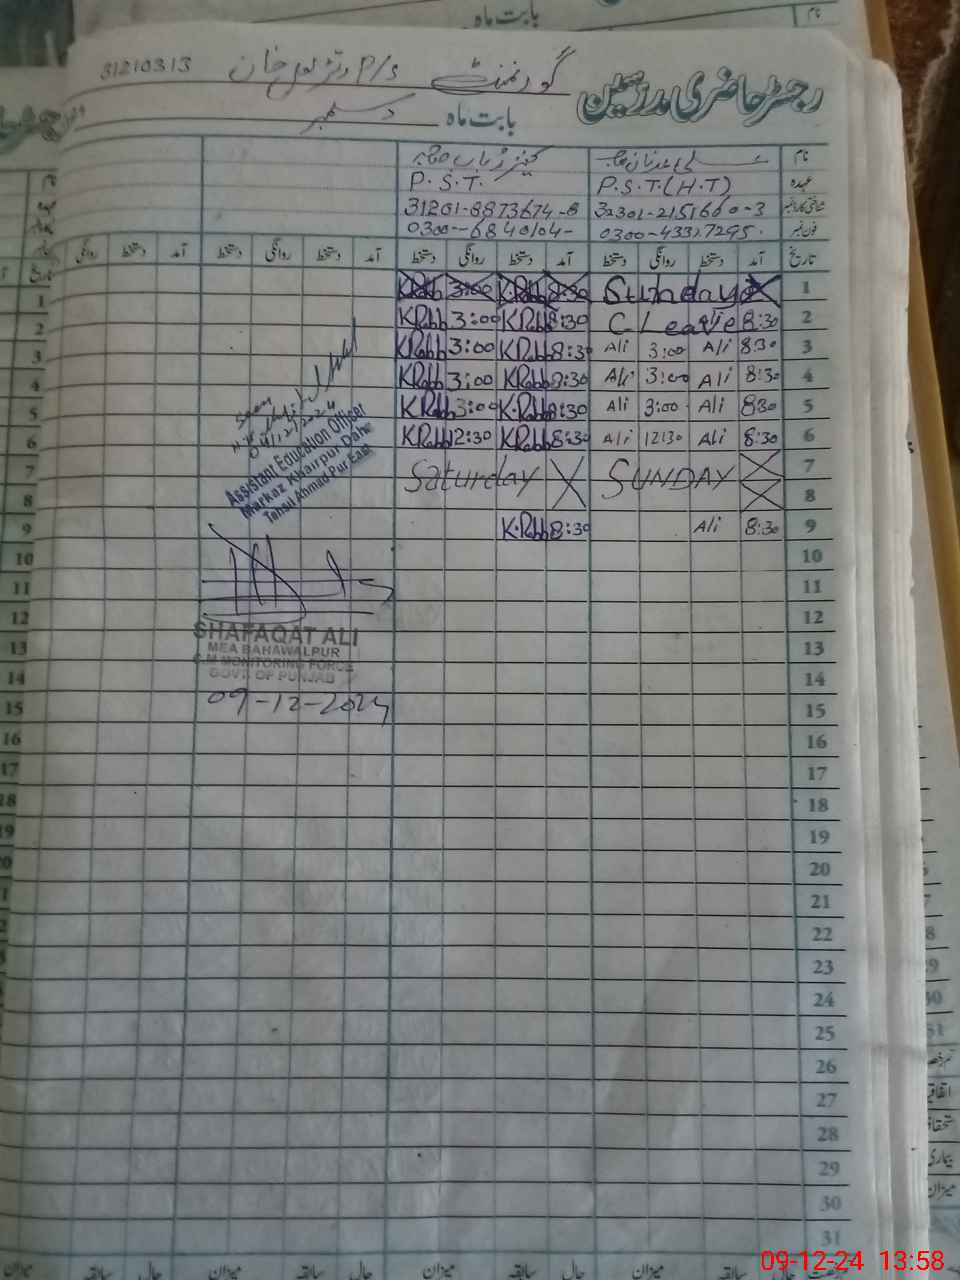 بابت ماہ
نام
رجسٹر حاضری مدرسین
گورنمنٹ P/S خان 31210313
بابت ماہ دسمبر
نام
عہدہ P.S.T.(H.T) P.S.T.
شناختی کارڈ نمبر 32301-2151660-3 31201-8873674-8
فون نمبر 0300-43327295. 0300-6840104-
تاریخ آمد دستخط روانگی دستخط آمد دستخط روانگی دستخط آمد دستخط روانگی دستخط آمد دستخط روانگی
1 Sunday K.Rabb 3:00 K.Rabb 8:30
2 C Leave 8:30 K Rabb 3:00 K Rabb 8:30
3 Ali 3:00 Ali 8:30 K Rabb 3:00 K Rabb 8:30
4 Ali 3:00 Ali 8:30 K Rabb 3:00 K Rabb 8:30
5 Ali 3:00 Ali 8:30 K Rabb 3:00 K.Rabb 8:30
6 Ali 12:30 Ali 8:30 K Rabb 12:30 K Rabb 8:30
7 SUNDAY Saturday
8
9 Ali 8:30 K.Rabb 8:30
10
11
12
13
14
15
16
17
18
19
20
21
22
23
24
25
26
27
28
29
30
31
Seen
04/12/2024
Assistant Education Officer
Markaz Khairpur Daha
Tehsil Ahmad Pur East
SHAFAQAT ALI
MEA BAHAWALPUR
C.M MONITORING FORCE
GOVT OF PUNJAB
09-12-2024
میزان حال سابقہ میزان حال سابقہ میزان حال سابقہ میزان
09-12-24 13:58